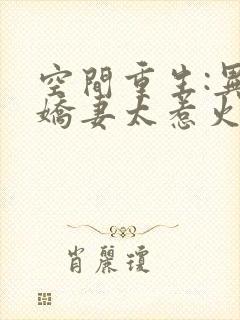 空間重生:異
嬌妻太惹火
肖麗瓊